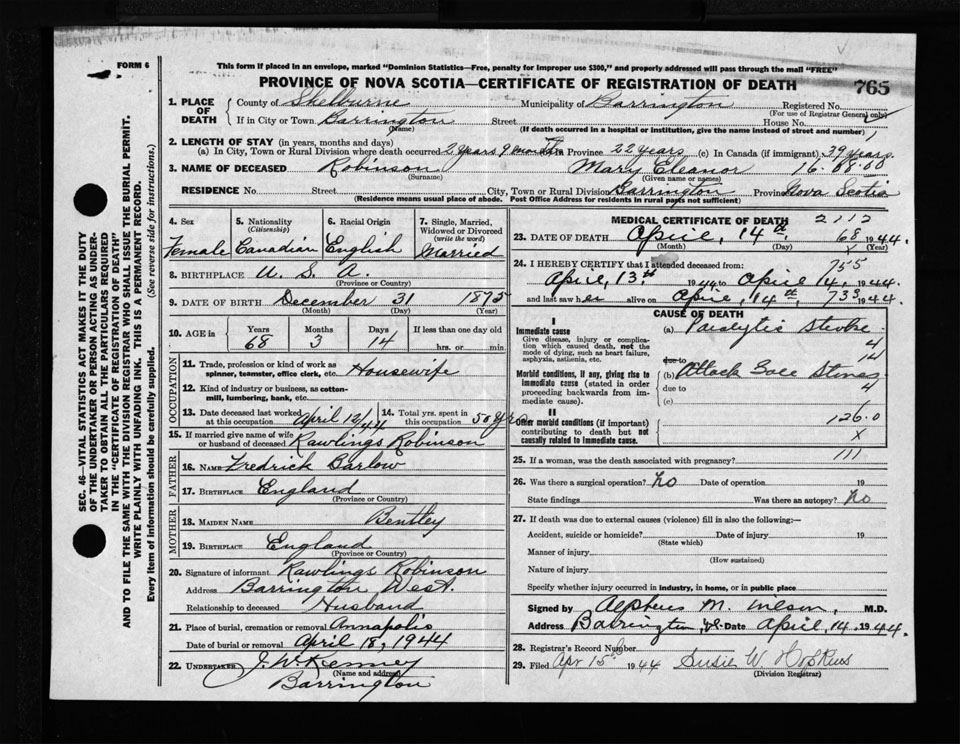 FORM 6
This form if placed in an envelope, marked "Dominion Statistics—Free, penalty for improper use $300," and properly addressed will pass through the mail "FREE"
PROVINCE OF NOVA SCOTIA—CERTIFICATE OF REGISTRATION OF DEATH 765
1. PLACE OF DEATH County of Shelburne Municipality of Barrington Registered No. (For use of Registrar General only)
If in City or Town Barrington (Name) Street House No.
(If death occurred in a hospital or institution, give the name instead of street and number)
2. LENGTH OF STAY (in years, months and days)
(a) In City, Town or Rural Division where death occurred 2 years 9 months Province 22 years (c) In Canada (if immigrant) 39 years
3. NAME OF DECEASED Robinson Mary Eleanor 16.08.00
(Surname) (Given name or names)
RESIDENCE No. Street City, Town or Rural Division Barrington Province Nova Scotia
(Residence means usual place of abode. Post Office Address for residents in rural parts not sufficient)
4. Sex Female
5. Nationality (Citizenship) Canadian
6. Racial Origin English
7. Single, Married, Widowed or Divorced (write the word) Married
8. BIRTHPLACE U. S. A.
(Province or Country)
9. DATE OF BIRTH December 31 1875
(Month) (Day) (Year)
10. AGE in Years 68 Months 3 Days 14 If less than one day old hrs. or min
OCCUPATION
11. Trade, profession or kind of work as spinner, teamster, office clerk, etc. Housewife
12. Kind of industry or business, as cotton-mill, lumbering, bank, etc.
13. Date deceased last worked at this occupation April 12/44
14. Total yrs. spent in this occupation 50 yrs
15. If married give name of wife or husband of deceased Rawlings Robinson
FATHER
16. NAME Fredrick Barlow
17. BIRTHPLACE England
(Province or Country)
MOTHER
18. MAIDEN NAME Bentley
19. BIRTHPLACE England
(Province or Country)
20. Signature of informant Rawlings Robinson
Address Barrington West.
Relationship to deceased Husband
21. Place of burial, cremation or removal Annapolis
Date of burial or removal April 18, 1944
22. UNDERTAKER J. W. Kenney
(Name and address)
Barrington
MEDICAL CERTIFICATE OF DEATH 2112
23. DATE OF DEATH April, 14th. 68 1944.
(Month) (Day) (Year)
24. I HEREBY CERTIFY that I attended deceased from: 755
April, 13.th 1944 to April 14, 1944.
and last saw her alive on April, 14th, 733 1944.
CAUSE OF DEATH
I
Immediate cause
Give disease, injury or complication which caused death, not the mode of dying, such as heart failure, asphyxia, asthenia, etc.
(a) Paralytic Stroke.
4
14
due to
Morbid conditions, if any, giving rise to immediate cause (stated in order proceeding backwards from immediate cause).
(b) Attack Gall Stones
4
due to
(c)
II
Other morbid conditions (if important) contributing to death but not causally related to immediate cause.
126.0
X
25. If a woman, was the death associated with pregnancy? 111
26. Was there a surgical operation? No Date of operation 19
State findings Was there an autopsy? No
27. If death was due to external causes (violence) fill in also the following:—
Accident, suicide or homicide? Date of injury 19
(State which)
Manner of injury
(How sustained)
Nature of injury
Specify whether injury occurred in industry, in home, or in public place
Signed by M. Wilson, M.D.
Address Barrington, Date April, 14. 1944.
28. Registrar's Record Number
29. Filed Apr 15th 1944 Susie W. Hopkins
(Division Registrar)
SEC. 46—VITAL STATISTICS ACT MAKES IT THE DUTY
OF THE UNDERTAKER OR PERSON ACTING AS UNDER-
TAKER TO OBTAIN ALL THE PARTICULARS REQUIRED
IN THE "CERTIFICATE OF REGISTRATION OF DEATH"
AND TO FILE THE SAME WITH THE DIVISION REGISTRAR WHO SHALL ISSUE THE BURIAL PERMIT.
WRITE PLAINLY WITH UNFADING INK. THIS IS A PERMANENT RECORD.
Every item of information should be carefully supplied. (See reverse side for instructions.)